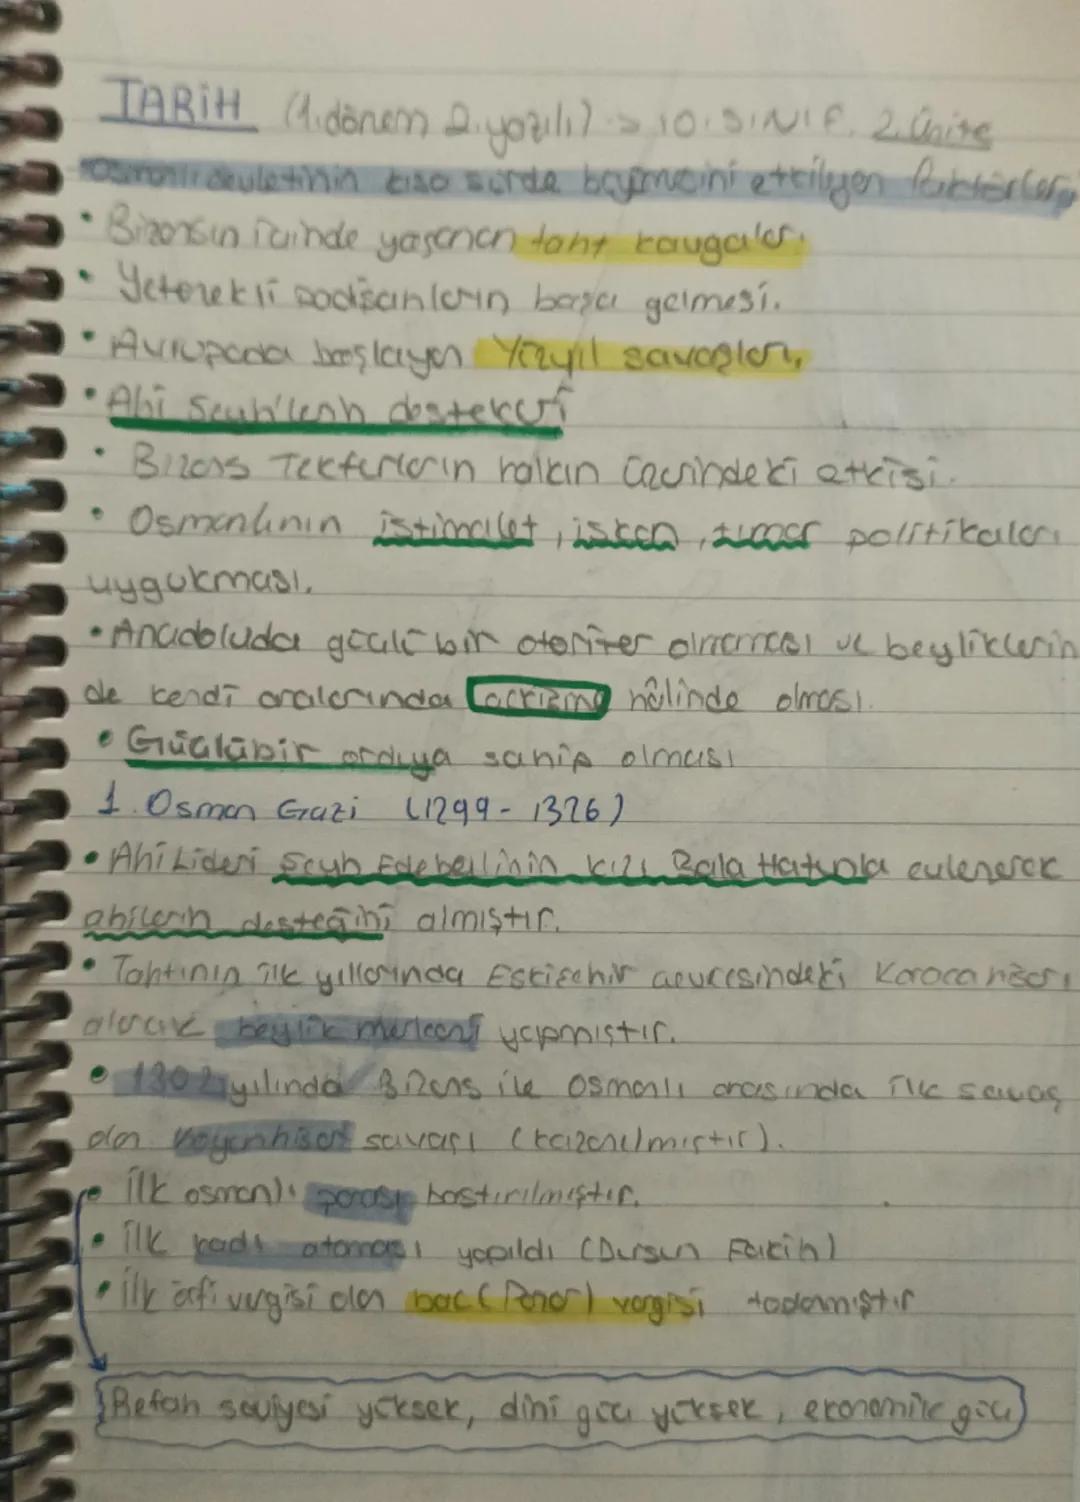 TARİH (1.dönem 2.yazılı) -> 10.SINIF. 2.Ünite
Osmanlı devletinin kısa sürde büyümesini etkilyen faktörler
• Bizansın içinde yaşanan taht kavgaları.
• Yeterekli padişahların başa gelmesi.
• Avrupada başlayan Yüzyıl savaşları,
• Ahi Şeyh'lerin destekleri
• Bizans Tekfurların halkın üzerindeki etkisi.
• Osmanlının istimalet, iskan, tımar politikaları
uygulkması.
• Anadoluda güçlü bir otoriter olmaması ve beyliklerin
de kendi aralarında çekişme hâlinde olması.
• Güçlübir orduya sahip olması
1. Osman Gazi (1299 - 1326)
• Ahi Lideri Şeyh Edebalinin kızı Bala Hatunla evlenerek
ahilerin desteğini almıştır.
• Tahtının ilk yıllarında Eskişehir çevresindeki Karacahisarı
alarak beylik merkezi yapmıştır.
• 1302 yılında Bizans ile Osmanlı arasında ilk savaş
olan Koyunhisar savaşı (kazanılmıştır).
• İlk osmanlı parası bastırılmıştır.
• İlk kadı ataması yapıldı (Dursun Fakih)
• İlk örfi vergisi olan bac (Pazar) vergisi
Refah seviyesi yüksek, dini gücü yüksek, ekonomik gücü